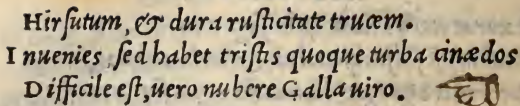 Hirſutum, & dura ruſticitate trucem.
Inuenies, ſed habet triſtis quoque turba cinædos
Difficile eſt, uero nubere Galla uiro.